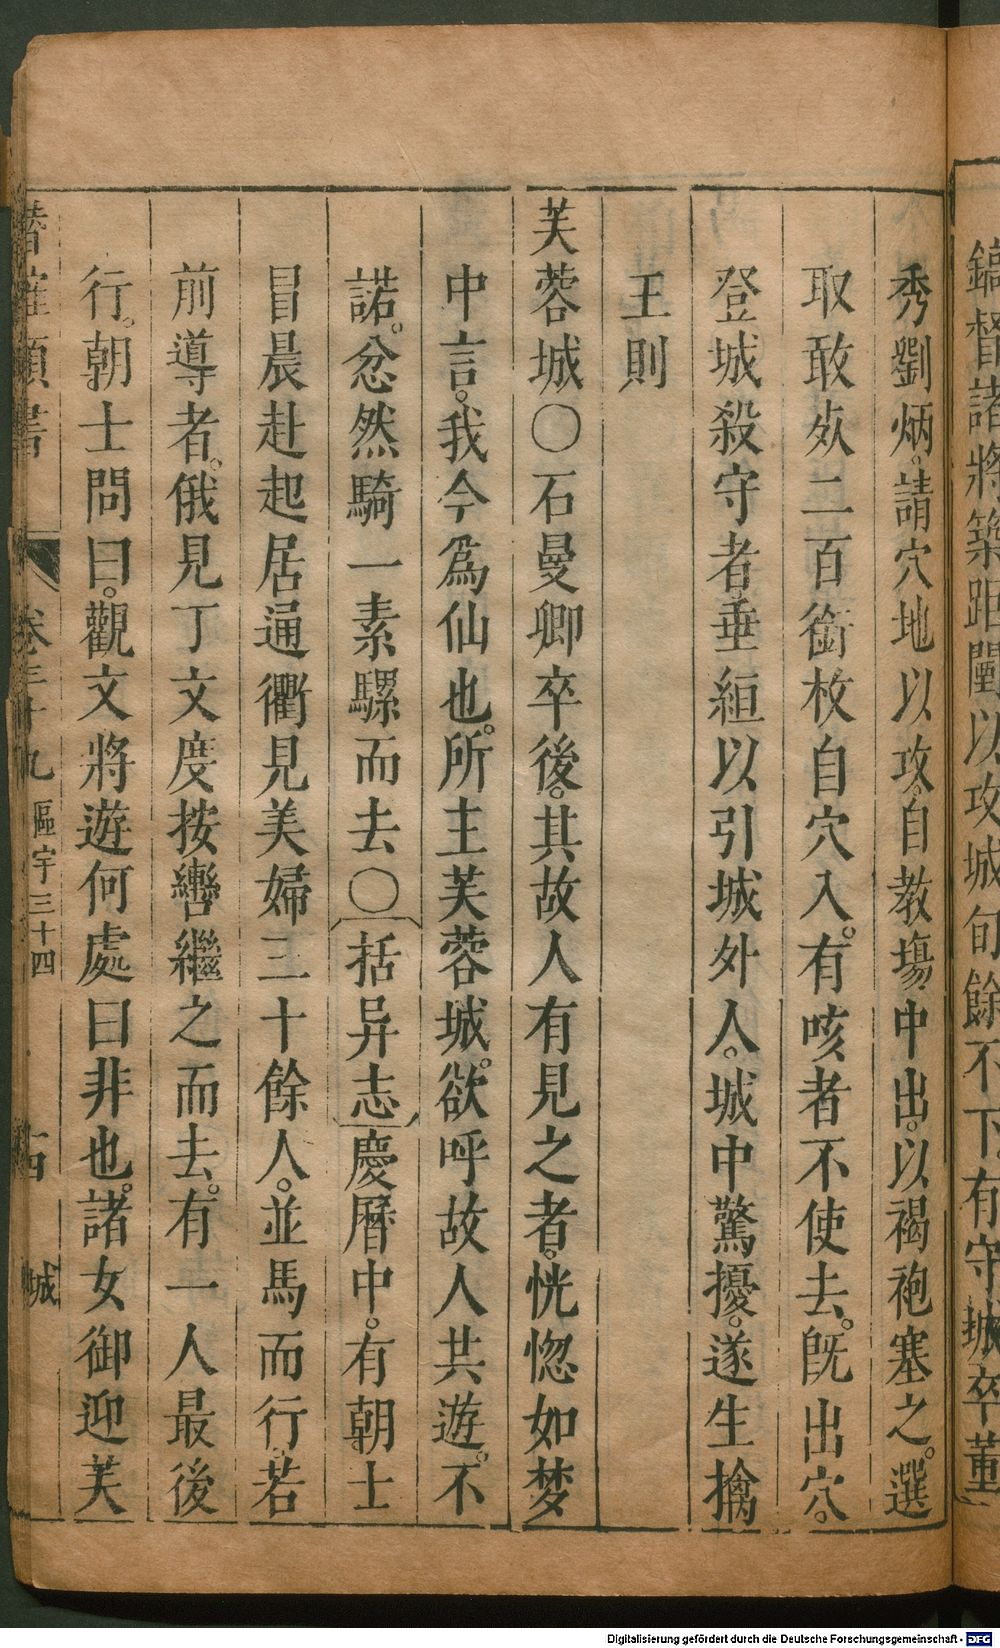 鎬督諸將築距闉以攻城旬餘不下有守城卒董
秀劉炳。請穴地以攻。自教塲中出。以褐袍塞之。選
取敢㱥二百銜枚自穴入。有咳者不使去。旣出穴。
登城殺守者。垂絙以引城外人。城中驚擾。遂生擒
王則
芙蓉城〇石曼卿卒後。其故人有見之者。恍惚如梦
中言。我今爲仙也。所主芙蓉城。欲呼故人共遊。不
諾。忿然騎一素騾而去〇括异志慶曆中。有朝士
冒晨赴起居通衢見美婦三十餘人。並馬而行。若
前導者。俄見丁文度按轡繼之而去。有一人最後
行。朝士問曰。觀文將遊何處曰非也。諸女御迎芙
潛確類書 卷三十九 區宇三十四 十四 城
Digitalisierung gefördert durch die Deutsche Forschungsgemeinschaft - DFG